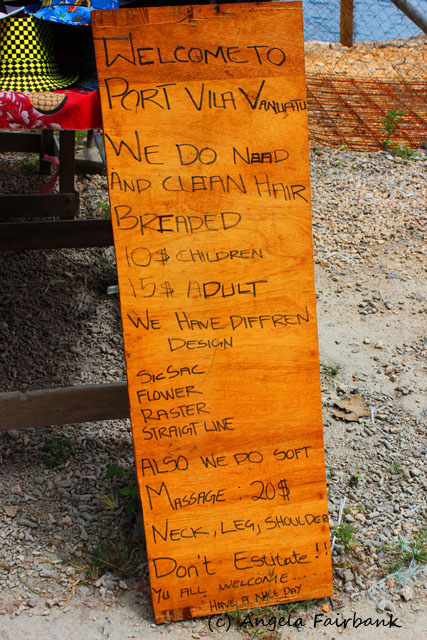 WELCOME TO
PORT VILA VANUATU
WE DO NEAD
AND CLEAN HAIR
BREADED
10$ CHILDREN
15$ ADULT
WE HAVE DIFFREN
DESIGN
SICSAC
FLOWER
RASTER
STRAIGT LINE
ALSO WE DO SOFT
MASSAGE : 20$
NECK, LEG, SHOULDER
DON'T ESTITATE !!
YU ALL WELCOME...
HAVE A NICE DAY
(c) Angela Fairbank